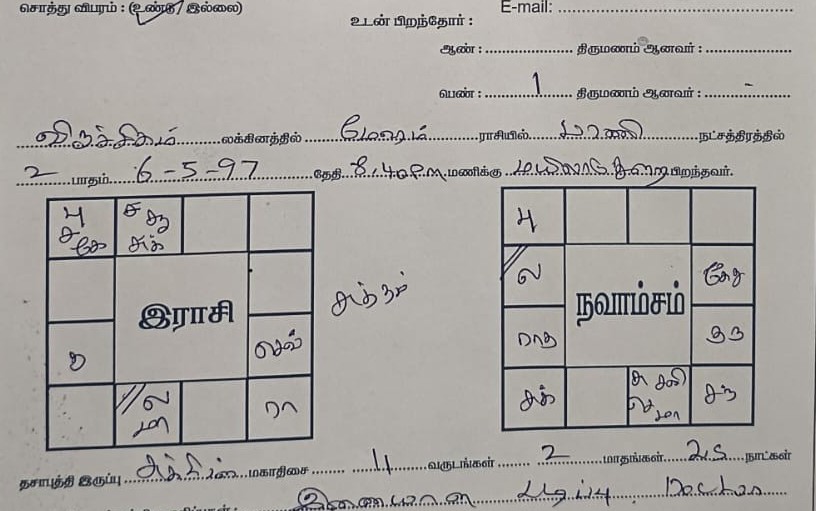 சொத்து விபரம் : (உண்டு / இல்லை)
E-mail: ........................................................
உடன் பிறந்தோர் :
ஆண் : ....................... திருமணம் ஆனவர் : .......................
பெண் : ........... 1 ........... திருமணம் ஆனவர் : .......... - ..........
விருச்சிகம் லக்கினத்தில் மேஷம் ராசியில் பரணி நட்சத்திரத்தில்
2 பாதம் 6-5-97 தேதி 8.40 P.m. மணிக்கு மயிலாடுதுறை பிறந்தவர்.
பு
ச
கே
ச சூ
சுக்
இராசி
சுத்தம்
செவ்
கு
ல
மா
ரா
பு
ல
நவாம்சம்
கேது
ராகு
குரு
சுக்
மா
தசாபுத்தி இருப்பு சுக்கிரன் மகாதிசை ...... 11 வருடங்கள் ...... 2 மாதங்கள் நாட்கள்
இணையான படிப்பு Doctor